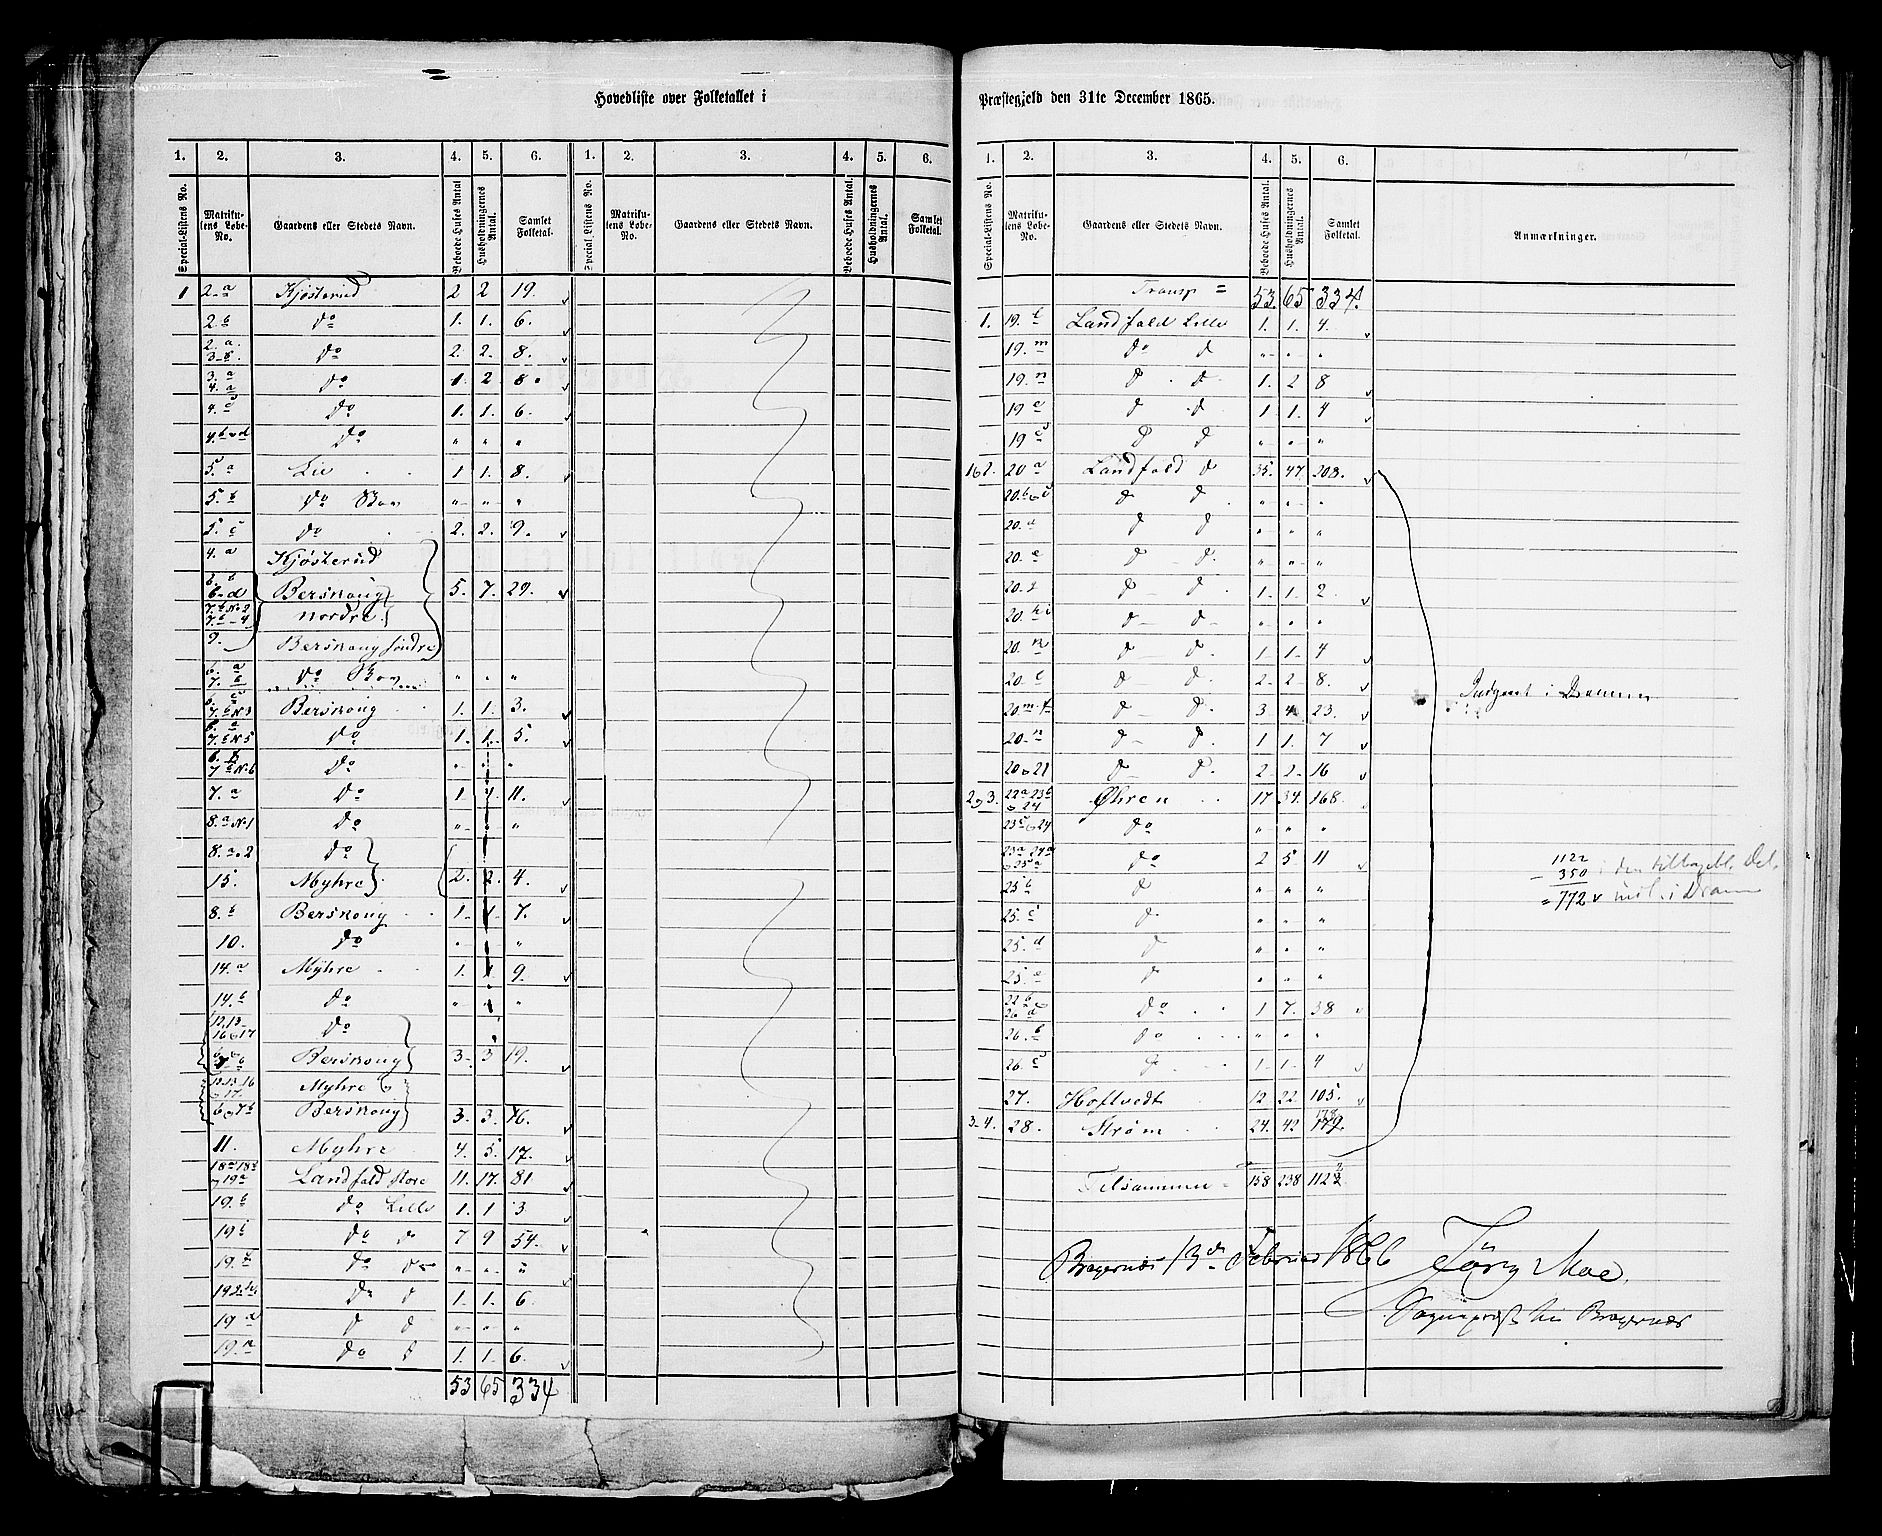 Hovedliste over Folketallet i
1. 2. 3. 4. 5. 6. 1. 2. 3. 4. 5. 6.
Special-Listens No. Matrikulens Løbe-No. Gaardens eller Stedets Navn. Beboede Huses Antal. Husholdningernes Antal. Samlet Folketal. Special-Listens No. Matrikulens Løbe-No. Gaardens eller Stedets Navn. Beboede Huses Antal. Husholdningernes Antal. Samlet Folketal.
1 2 a Kjøsterud 2 2 19.
2 b do 1. 1. 6.
2. a 3 b. do 2. 2. 8.
3. a 4. a do 1. 2 8.
4. c do 1. 1. 6.
4. b d do " " "
5. a Lie 1. 1. 8.
5. b do " " "
5 c do 2. 2. 9.
4. a Kjøsterud
6. b
6 d Berskoug 5. 7. 29.
7. b No 2
7. b - 4 nordre
9. Berskoug søndre
6. a 7. b do " " "
6. c 7. b No 3 Berskoug 1. 1. 3.
7. b No 5 do 1. 1. 5.
7 b No 6 do " " "
7. a do 1. 1. 11.
8. a No 1 do " " "
8. a 2 do
15. Myhre 2. 2. 4.
8. b Berskoug 1 1. 7.
10. do " " "
14. a Myhre 1. 1 9.
14. b do " " "
12. 13. 16 17 do
Berskoug 3. 3 19.
12. 13. 16 17. Myhre
6 7 b Berskoug 3. 3. 16.
11. Myhre 4. 5. 17.
18 a 18 b 19 a Landfald Store 11. 17. 81
19. b do Lille 1. 1 3
19 c do do 7 9 54.
19. do " " "
19 do d 1. 1. 6
19 d d d " " "
19. do 1. 1. 6.
53 65 334
Præstegjeld den 31te December 1865.
1. 2. 3. 4. 5. 6.
Special-Listens No. Matrikulens Løbe-No. Gaardens eller Stedets Navn. Beboede Huses Antal. Husholdningernes Antal. Samlet Folketal. Anmærkninger.
Transp = 53. 65 334.
1. 19. l Landfald Lille 1. 1. 4.
19. m do d " " "
19. n d d 1. 2 8
19 d d 1 1. 4
19 d d " " "
1 2. 20 a Landfald d 35. 47 208.
20. b c d d " " "
20. d d d " " "
20. e d d. " " "
20. d d 1. 1. 2
20. h i d d " " "
20. d d. 1 1. 4
20. l d d 2. 2 8.
20. m d d. 3 4 23.
20 n d d. 1 1. 7
20 21 d d. 2 2. 16
2 3. 22 a 23 b 24 Øhren 17 34. 168
23 c 24 do " " "
23 a 24 a 25 a do 2 5. 11
25 b d " " "
25. c d " " "
25. d d " " "
25. e d " " "
22 b 26 a do 1 7. 38
26. b do " " "
26. c 1. 1. 4
27. Hoftvedt 12 22 105.
3 4. 28. Strøm 24. 42 179. 178
Tilsammen = 158 238 1122
Indgaaet i Drammen
1122
- 350
= 772
Bragernæs 13de Februar 1866 Jörg. Moe.
Sognepræst til Bragernæs